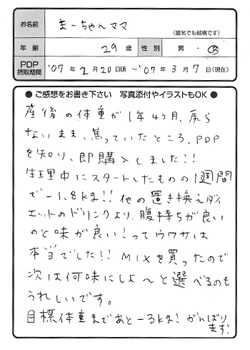 お名前 まーちゃんママ
(匿名でも結構です)
年齢 29歳 性別 男・女
PDP摂取期間 '07年2月20日頃〜'07年3月7日(現在)
●ご感想をお書き下さい 写真添付やイラストもOK●
産後の体重が1年4ヶ月、戻ら
ないまま、焦っていたところ、PDP
を知り、即購入しました!!
生理中にスタートしたものの1週間
で−1.8kg!! 他の置き換えダイ
エットのドリンクより、腹持ちが良い
のと味が良い!ってウワサは
本当でした!! MIXを買ったので
次は何味にしよ〜と選べるのも
うれしいです。
目標体重まであと−3kg! がんばり
ます!